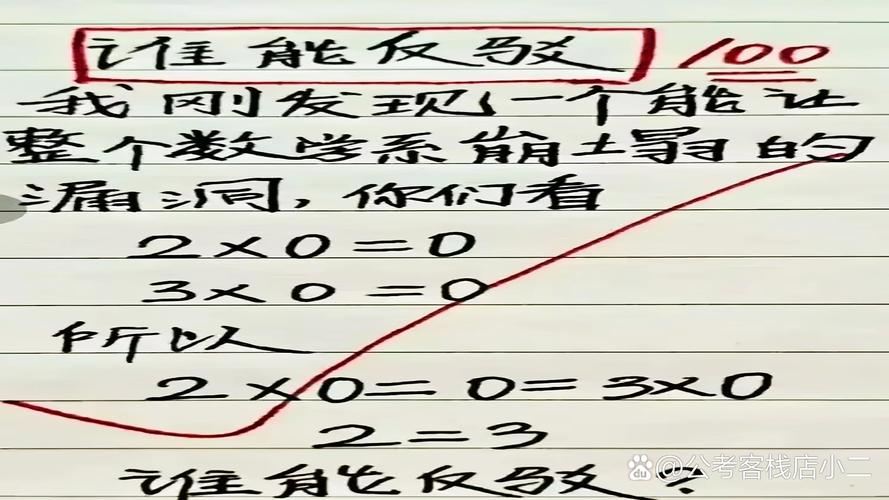 谁能反驳 100
我刚发现一个能让
整个数学系崩塌的
漏洞,你们看
2×0=0
3×0=0
所以
2×0=0=3×0
2=3
谁能反驳?
公考客栈店小二